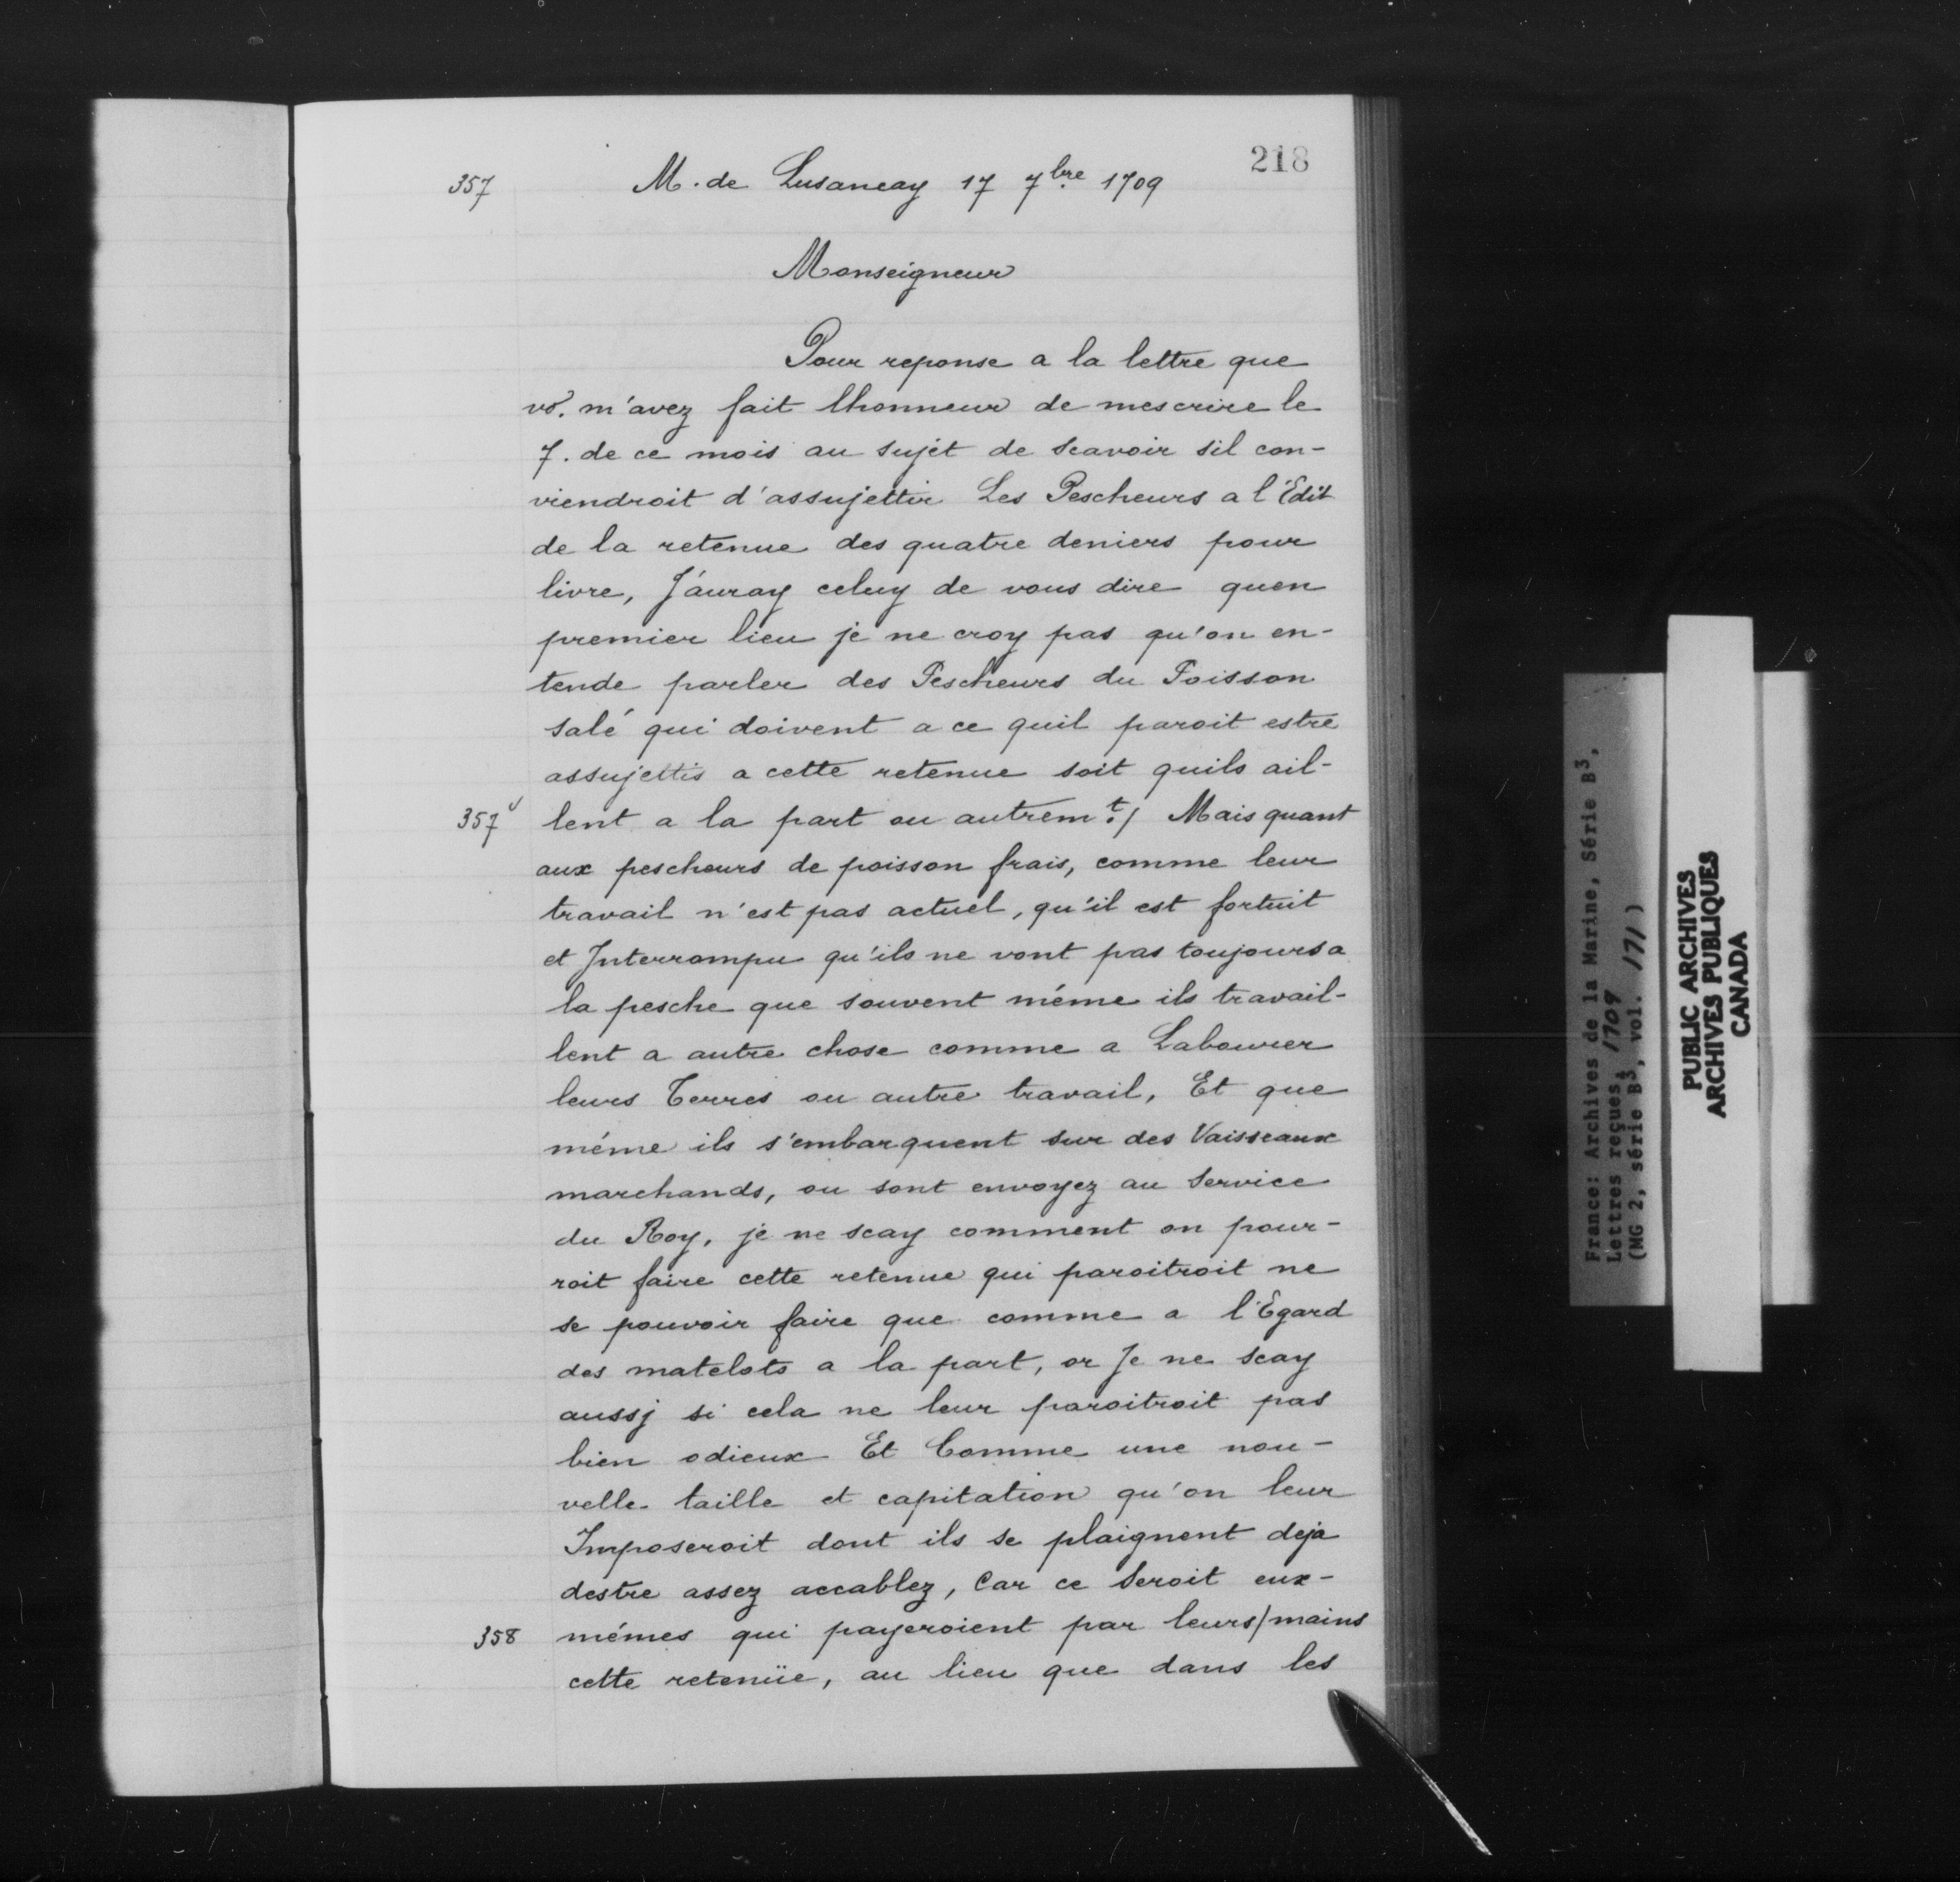 218
357 M. de Lusancay 17 7bre 1709
Monseigneur
Pour reponse a la lettre que
vo. m'avez fait lhonneur de mescrire le
7. de ce mois au sujét de scavoir sil con-
viendroit d'assujettir Les Pescheurs a l'Edit
de la retenue des quatre deniers pour
livre, J'auray celuy de vous dire quen
premier lieu je ne croy pas qu'on en-
tende parler des Pescheurs du Poisson
salé qui doivent a ce quil paroit estre
assujettis a cette retenue soit quils ail-
357v lent a la part ou autremt./ Mais quant
aux pescheurs de poisson frais, comme leur
travail n'est pas actuel, qu'il est fortuit
et Interrompu qu'ils ne vont pas toujours a
la pesche que souvent méme ils travail-
lent a autre chose comme a Labourer
leurs Terres ou autre travail, Et que
méme ils s'embarquent sur des Vaisseaux
marchands, ou sont envoyez au Service
du Roy, je ne scay comment on pour-
roit faire cette retenue qui paroitroit ne
se pouvoir faire que comme a l'Egard
des matelots a la part, or Je ne scay
aussj si cela ne leur paroitroit pas
bien odieux Et Comme une nou-
velle taille et capitation qu'on leur
Imposeroit dont ils se plaignent deja
destre assez accablez, Car ce seroit eux-
358 mémes qui payeroient par leurs/mains
cette retenüe, au lieu que dans les
France: Archives de la Marine, Série B3,
Lettres reçues, 1709
(MG 2, série B3, vol. 171)
PUBLIC ARCHIVES
ARCHIVES PUBLIQUES
CANADA